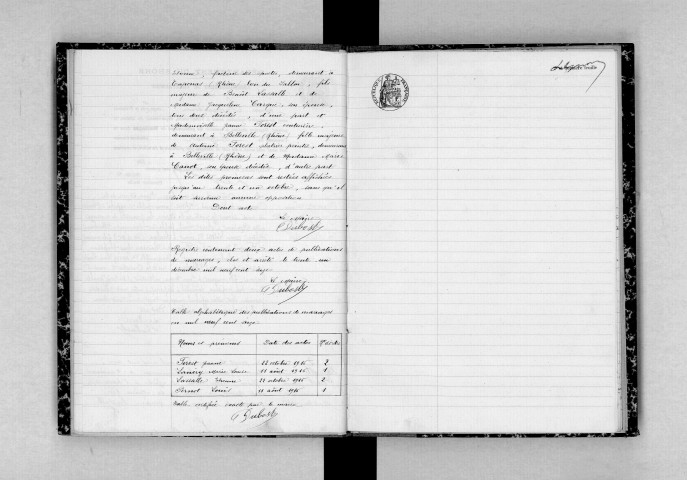 Etienne, facteur des postes, demeurant à
(Rhône) lieu des Sablons, fils
majeur de Benoît Lassalle et de
Madame Jacqueline son épouse,
tous deux décédés, d'une part et
Mademoiselle Jeanne Forest couturière,
demeurant à Belleville (Rhône) fille majeure
de Antoine Forest demeurant
à Belleville (Rhône) et de Madame Marie
son épouse décédée, d'autre part
Les dites promesses sont restées affichées
jusqu'au trente et un octobre, sans qu'il
soit survenu aucune opposition
Dont acte
Le Maire
Dubost
Registre contenant deux actes de publications
de mariages, clos et arrêté le trente un
décembre mil neuf cent seize
Le Maire
Dubost
Table alphabétique des publications de mariages
en mil neuf cent seize
Noms et prénoms Date des actes
Forest Jeanne 22 octobre 1916 2
Marie Louise 11 août 1916 1
Lassalle Etienne 22 octobre 1916 2
Louis 11 août 1916 1
Table certifiée exacte par le maire
Dubost